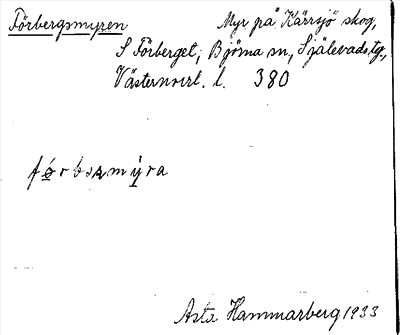 Förbergsmyren Myr på Kärrsjö skog,
S Förberget, Björna sn, Själevads tg,
Västernorrl. l. 380
fórbsmy̆ra
Asta Hammarberg 1933